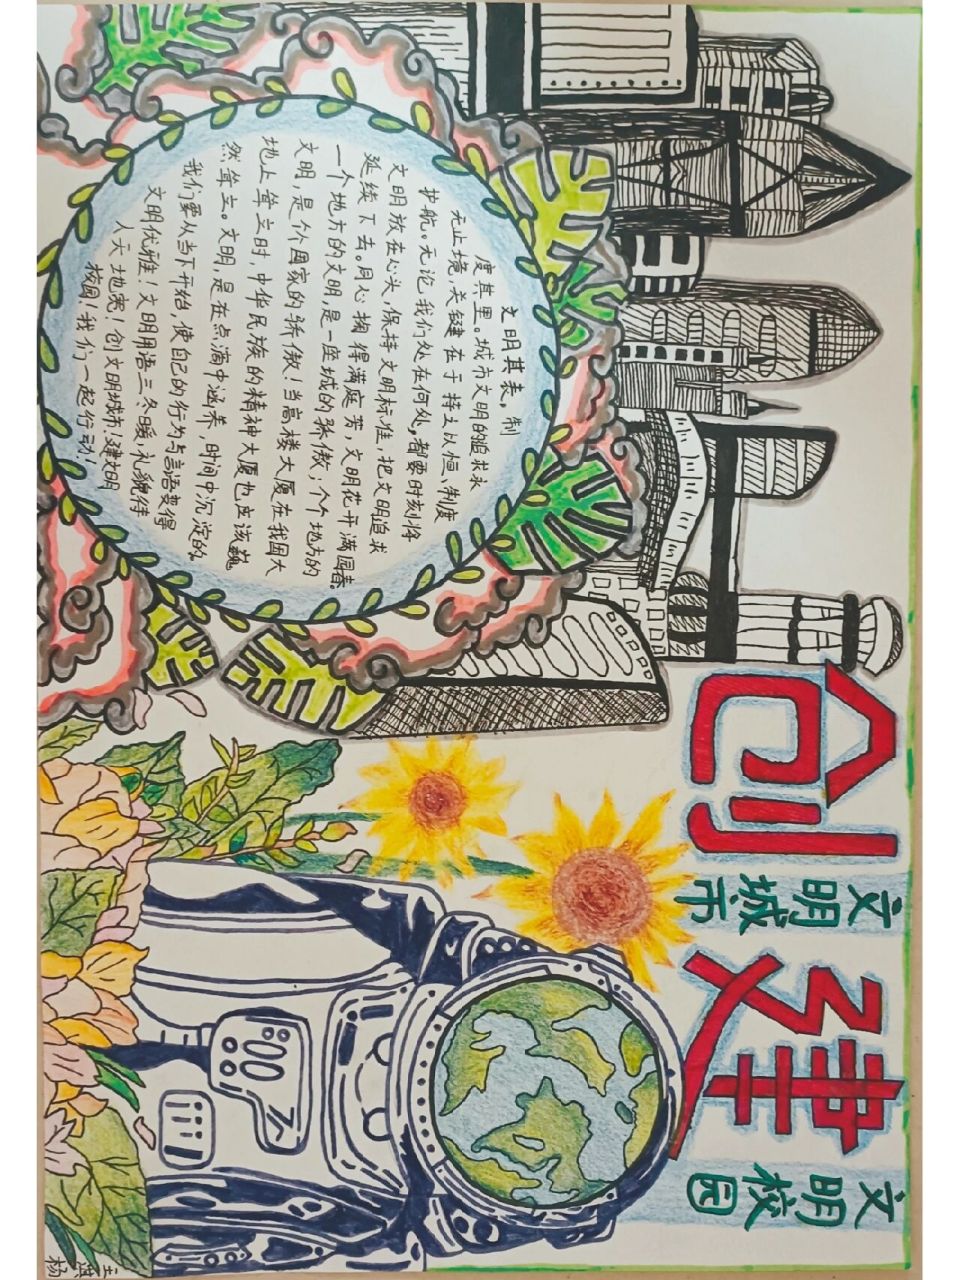 创
文明城市
建
文明校园
文明其表，制
度其里。城市文明的追求永
无止境，关键在于持之以恒、制度
护航。无论我们处在何处，都要时刻将
文明放在心头，保持文明标准，把文明追求
延续下去。同心掬得满庭芳，文明花开满园春。
一个地方的文明，是一座城的骄傲；个个地方的
文明，是个国家的骄傲！当高楼大厦在我国大
地上耸立时，中华民族的精神大厦也应该巍
然耸立。文明，是在点滴中涵养，时间中沉淀的。
我们要从当下开始，使自己的行为与言语变得
文明优雅！文明用语三冬暖，礼貌待
人天地宽！创文明城市！建文明
校园！我们一起行动！